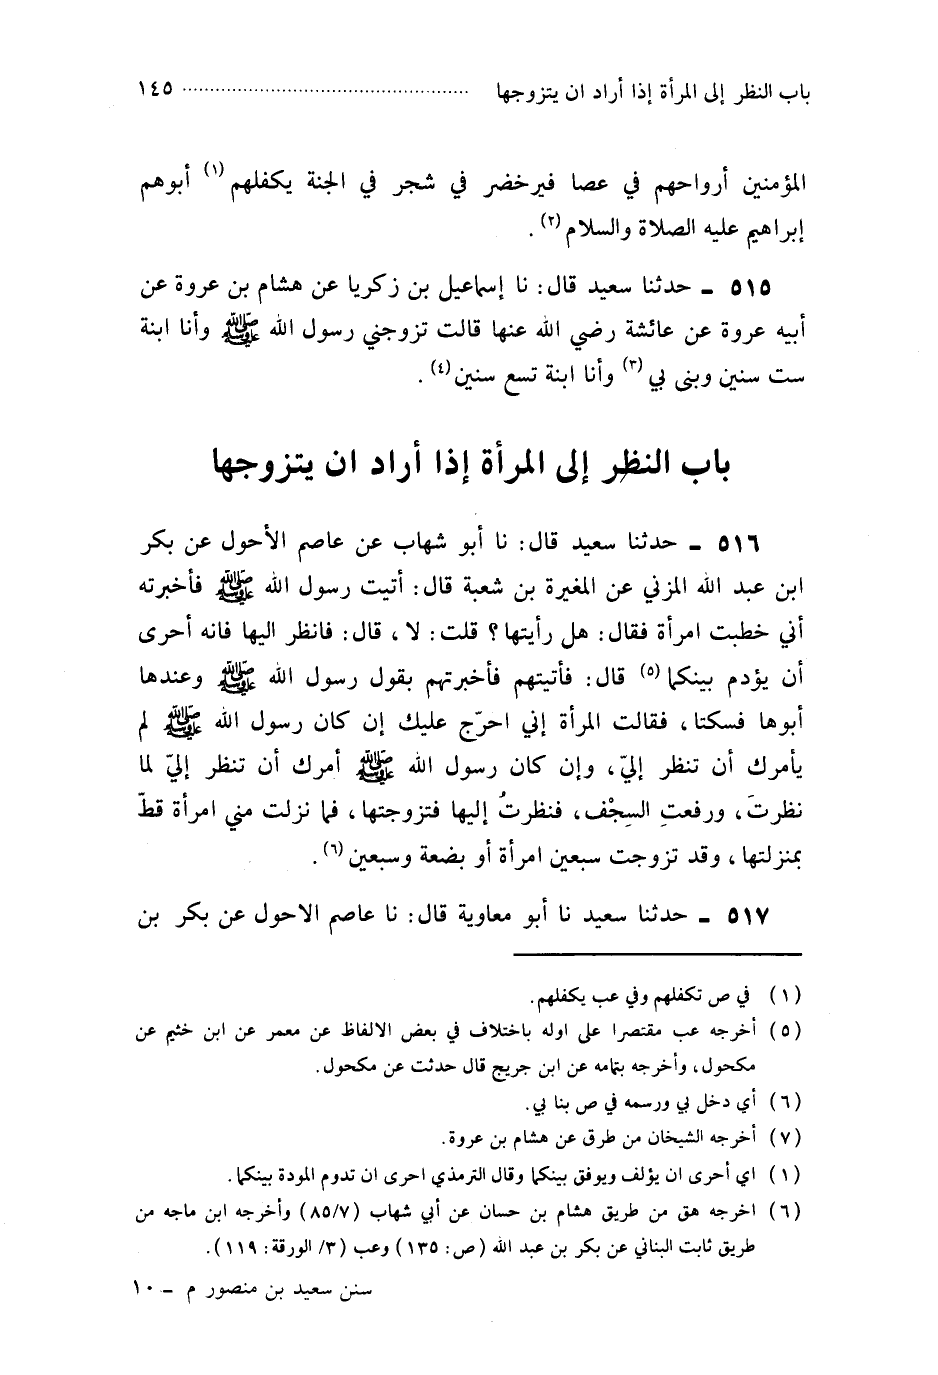 باب النظر إلى المرأة إذا أراد ان يتزوجها ........................................ ١٤٥
المؤمنين أرواحهم في عصا فيرخضر في شجر في الجنة يكفلهم (١) أبوهم
إبراهيم عليه الصلاة والسلام (٢) .
٥١٥ ـ حدثنا سعيد قال: نا إسماعيل بن زكريا عن هشام بن عروة عن
أبيه عروة عن عائشة رضي الله عنها قالت تزوجني رسول الله ﷺ وأنا ابنة
ست سنين وبنى بي (٣) وأنا ابنة تسع سنين (٤) .
باب النظر إلى المرأة إذا أراد ان يتزوجها
٥١٦ ـ حدثنا سعيد قال: نا أبو شهاب عن عاصم الأحول عن بكر
ابن عبد الله المزني عن المغيرة بن شعبة قال: أتيت رسول الله ﷺ فأخبرته
أني خطبت امرأة فقال: هل رأيتها؟ قلت: لا، قال: فانظر اليها فانه أحرى
أن يؤدم بينكما (٥) قال: فأتيتهم فأخبرتهم بقول رسول الله ﷺ وعندها
أبوها فسكتا، فقالت المرأة إني احرّج عليك إن كان رسول الله ﷺ لم
يأمرك أن تنظر إليّ، وإن كان رسول الله ﷺ أمرك أن تنظر إليّ لما
نظرتَ، ورفعتِ السِجْف، فنظرتُ إليها فتزوجتها، فما نزلت مني امرأة قطّ
بمنزلتها، وقد تزوجت سبعين امرأة أو بضعة وسبعين (٦) .
٥١٧ ـ حدثنا سعيد نا أبو معاوية قال: نا عاصم الاحول عن بكر بن
(١) في ص تكفلهم وفي عب يكفلهم.
(٥) أخرجه عب مقتصرا على اوله باختلاف في بعض الالفاظ عن معمر عن ابن خثيم عن
مكحول، وأخرجه بتمامه عن ابن جريج قال حدثت عن مكحول.
(٦) أي دخل بي ورسمه في ص بنا بي.
(٧) أخرجه الشيخان من طرق عن هشام بن عروة.
(١) اي أحرى ان يؤلف ويوفق بينكما وقال الترمذي احرى ان تدوم المودة بينكما.
(٦) اخرجه هق من طريق هشام بن حسان عن أبي شهاب (٨٥/٧) وأخرجه ابن ماجه من
طريق ثابت البناني عن بكر بن عبد الله (ص: ١٣٥) وعب (٣/ الورقة: ١١٩).
سنن سعيد بن منصور م ـ ١٠